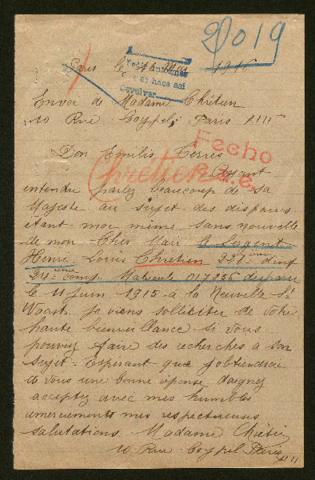 2019
Paris le
1916
Devolver
Envoi de Madame Chrétien
10 Rue Coypel Paris XIII
Don Emilio Torres
Fecho
Chrétien
Ayant
entendu parlez beaucoup de Sa
Majeste au sujet des disparus
étant moi même sans nouvelle
de mon Cher Mari le Sergent
Henri Louis Chretien 221 d'Inf
24 eme Comp Matricule 017236 disparu
le 11 Juin 1915 à la Neuville St
Waast je viens sollisiter de votre
haute bienveillance si vous
pouvez faire des recherches a son
Sujet. Esperant que j'obtiendrai
de vous une bonne réponse daignez
acceptez avec mes humbles
remerciements mes respectueuses
salutations Madame Chrétien
10 Rue Coypel Paris
XIII